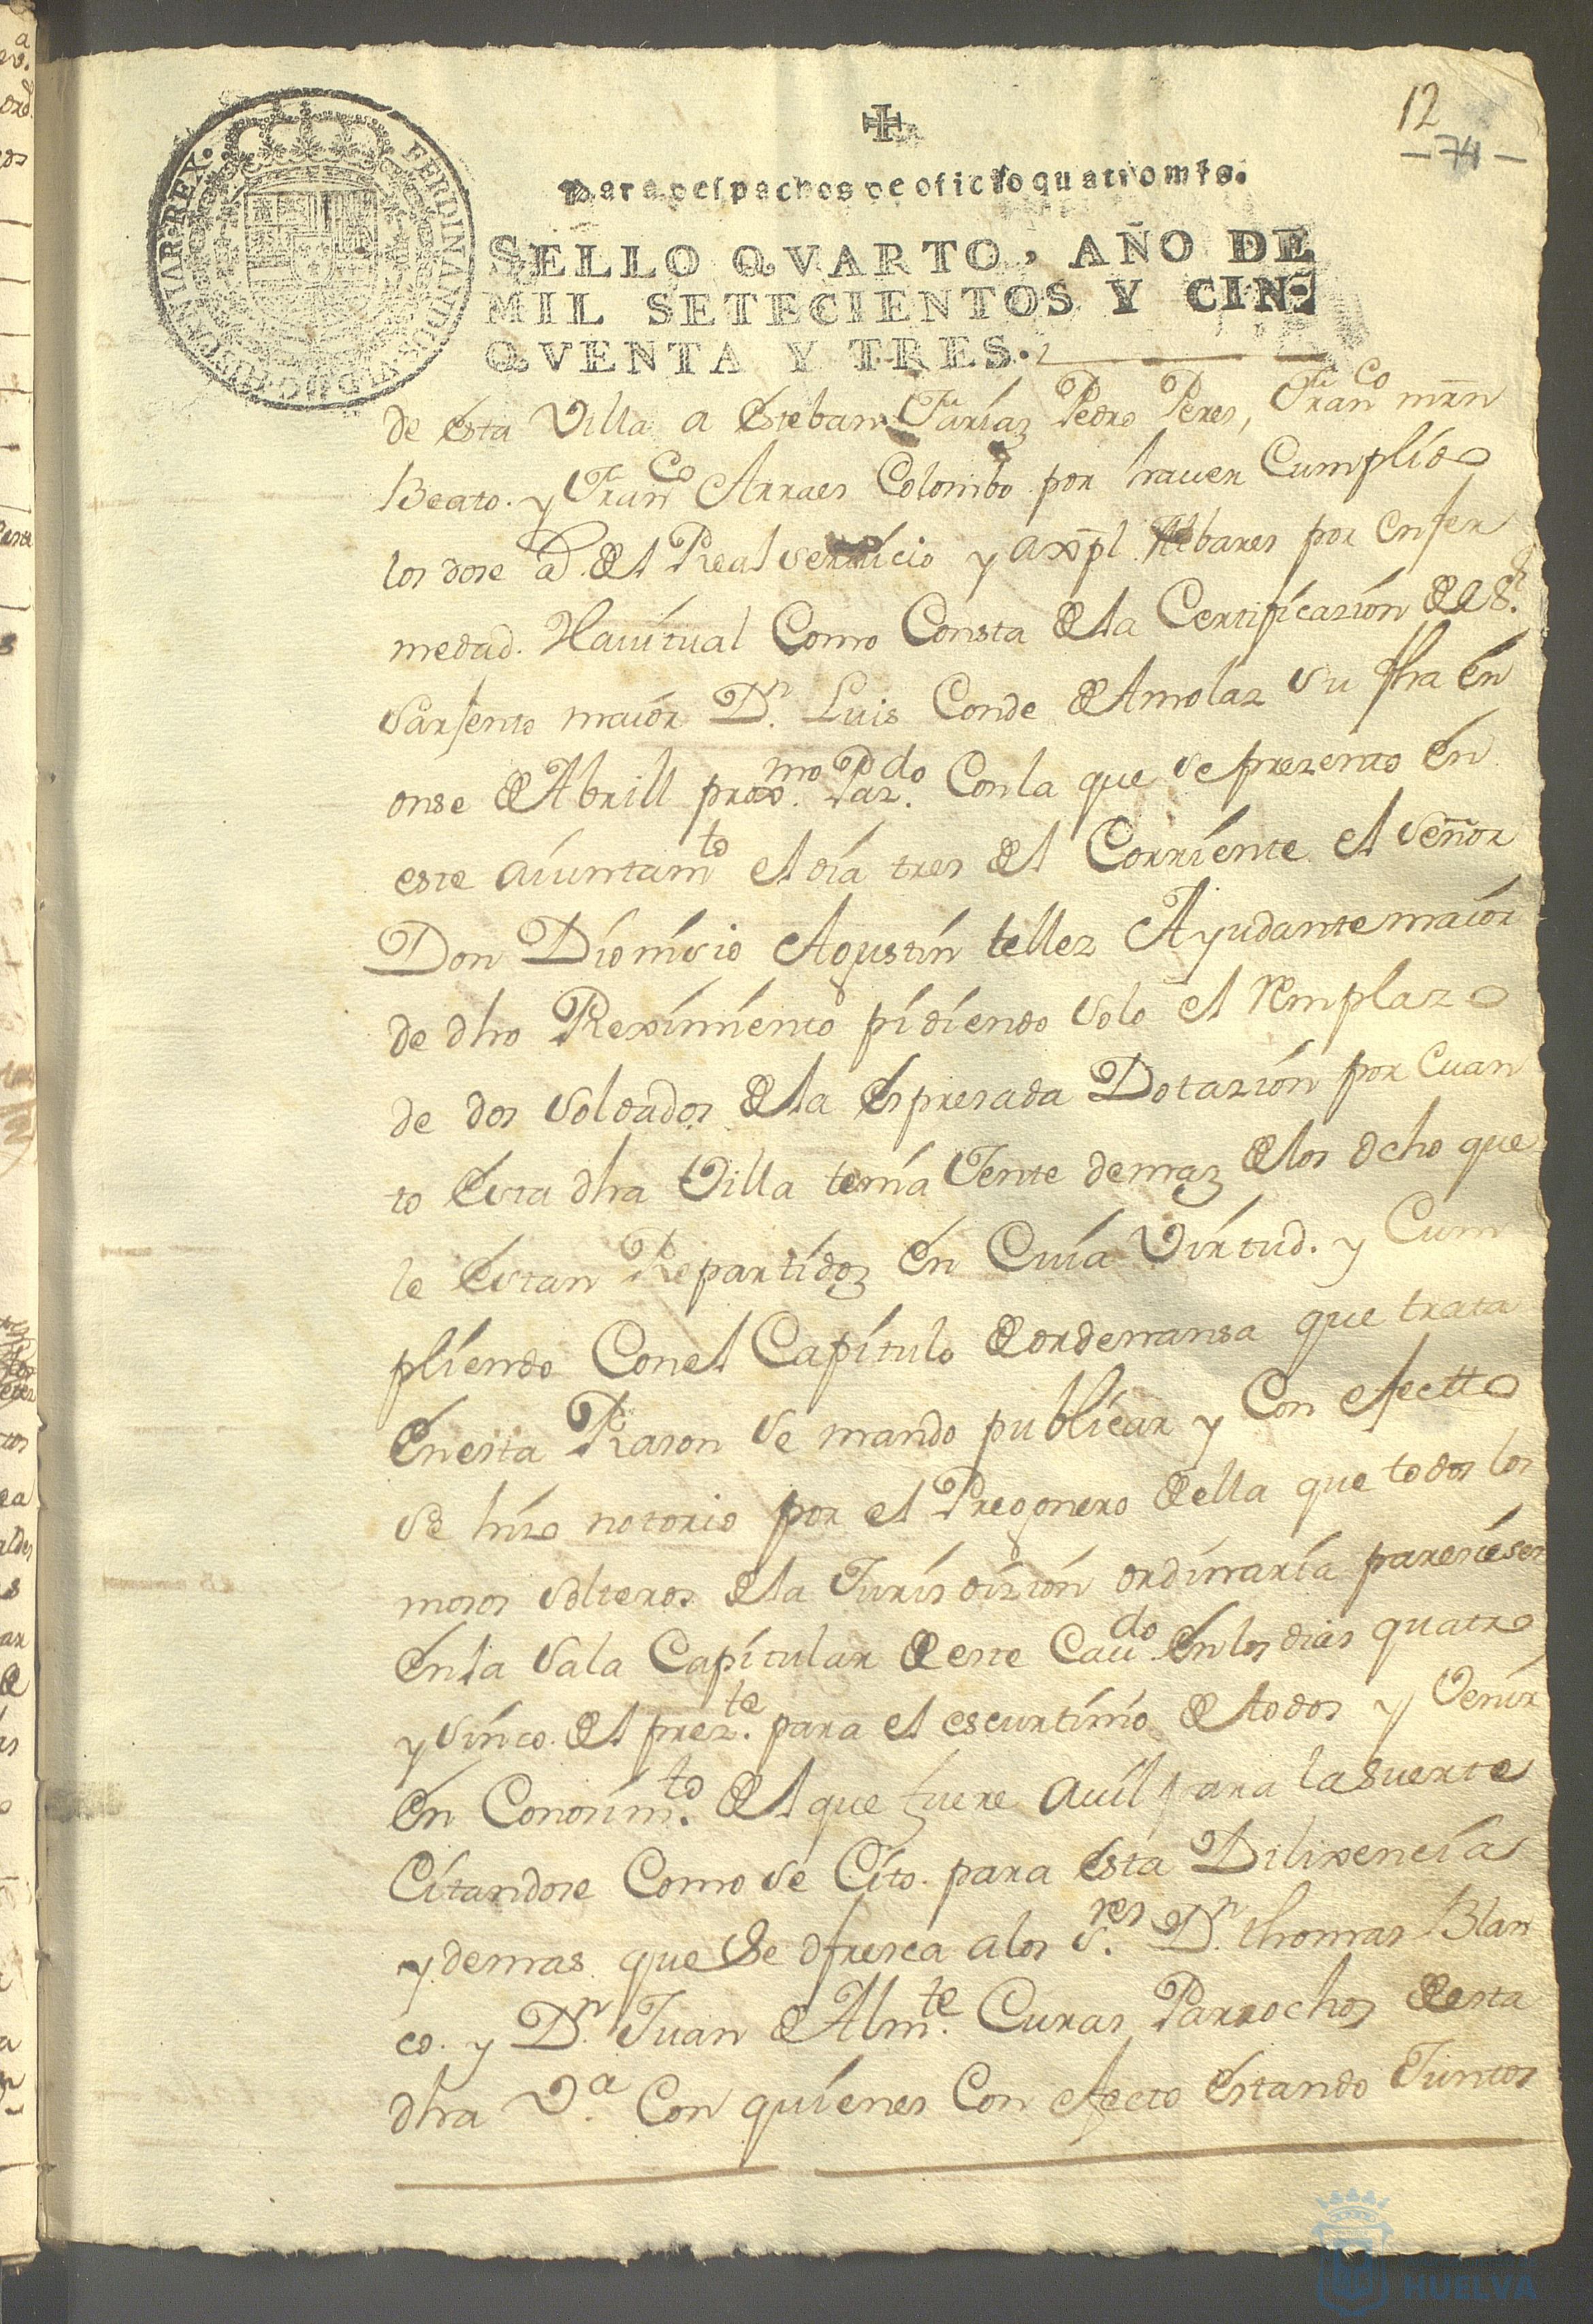 12
- 71 -
Para despachos de oficio quatro mrs.
SELLO QVARTO, AÑO DE
MIL SETECIENTOS Y CIN-
QVENTA Y TRES.
FERDINANDUS VI D G HISPANIAR REX
de esta Villa a Esteban Farias Pedro Peres, Franco mrn
Beato. y Franco Arraes Colombo por hauer Cumplido
los dose ad. del Real seruicio y axpl. Albares por enfer
medad. Hauitual Como Consta de la Certificazion del Sr.
Sarjento maior Dn. Luis Conde de Amolaz su fha en
onse de Abrill proxmo. Pazdo. Con la que se prezento en
este aiuntamto el dia tres del Corriente el señor
Don Dionisio Agustin tellez Ayudante maior
de dho Reximiento pidiendo solo el remplazo
de dos soldados de la espresada Dotazion por cuan
to esta dha Villa tenia Jente demaz de los ocho que
le estan Repartidoz en Cuia Virtud. y Cum
pliendo Con el Capitulo de ordenansa que trata
en esta Rason se mando publicar y Con efectto
se hizo notorio por el Pregonero de ella que todos los
mosos solteros de la Jurisdizion ordinaria paresiesen
en la Sala Capitular de este Caudo en los dias quatro
y sinco del prezte. para el escurtinio de todos y Venir
en Conosimto. del que fuere auil para la suerte
Citandose Como se Cito para esta Dilixencia
y demas que se ofresca a los Sres. Dn. thomas Blan
co. y Dn. Juan de Almte. Curas Parrochos de esta
dha Va. Con quienes Con efecto estando Juntos
HUELVA